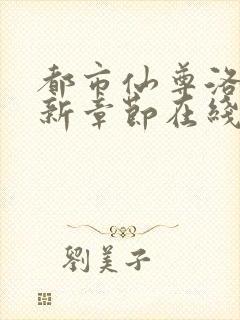 都市仙尊洛
新章節在綫
劉美子